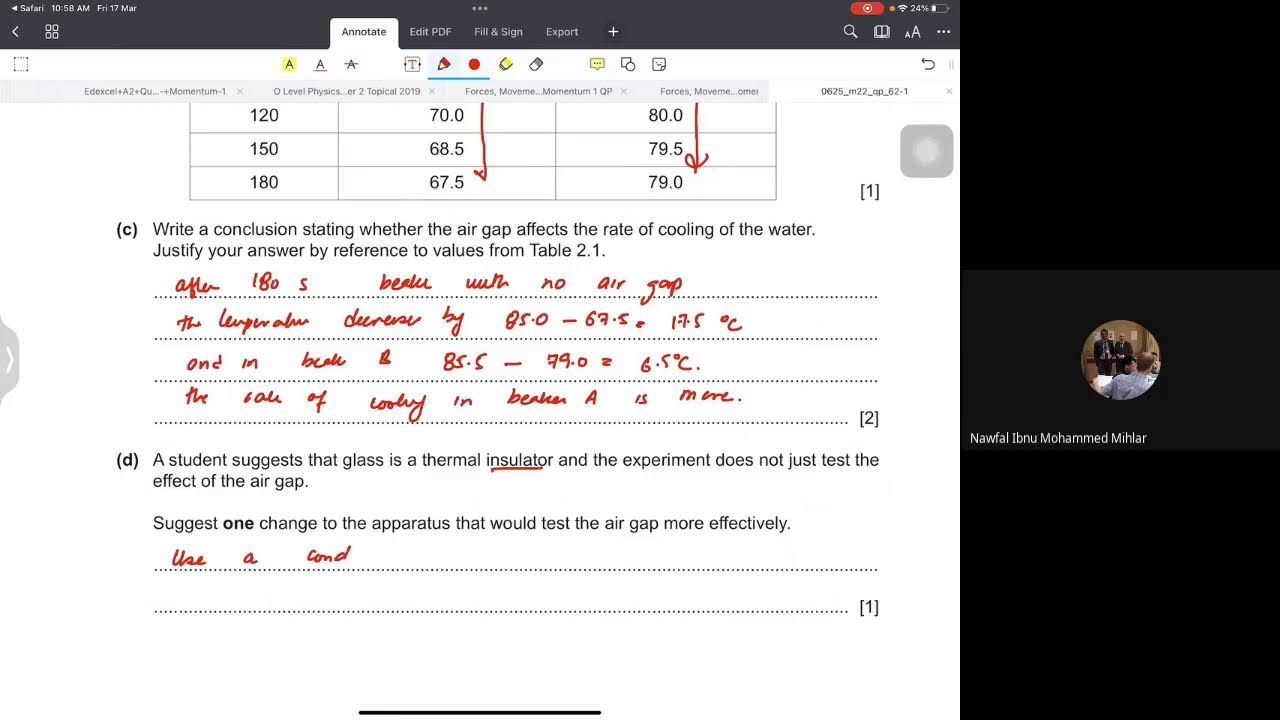 Safari 10:58 AM Fri 17 Mar 24%
Annotate Edit PDF Fill & Sign Export
Edexcel+A2+Qu...-+Momentum-1 O Level Physics...er 2 Topical 2019 Forces, Moveme...Momentum 1 QP Forces, Moveme...omer 0625_m22_qp_62-1
120 70.0 80.0
150 68.5 79.5
180 67.5 79.0
[1]
(c) Write a conclusion stating whether the air gap affects the rate of cooling of the water.
Justify your answer by reference to values from Table 2.1.
after 180 s beaker with no air gap
the temperature decrease by 85.0 - 67.5 = 17.5 °C
and in beak B 85.5 - 79.0 = 6.5°C.
the rate of cooling in beaker A is more.
[2]
(d) A student suggests that glass is a thermal insulator and the experiment does not just test the
effect of the air gap.
Suggest one change to the apparatus that would test the air gap more effectively.
Use a cond
[1]
Nawfal Ibnu Mohammed Mihlar